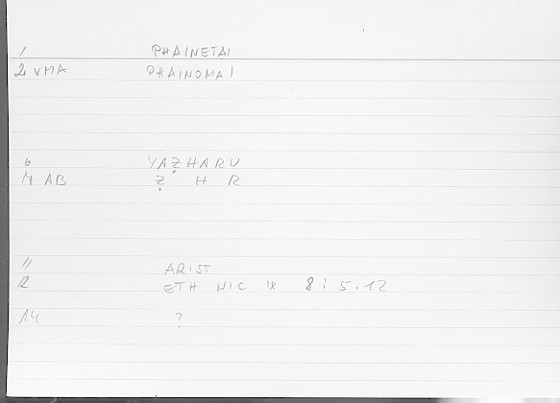 1 PHAINETAI
2 VMA PHAINOMAI
6 YAẒHARU
7 AB Ẓ H R
11 ARIST
12 ETH NIC IX 8 : 5.12
14 ?